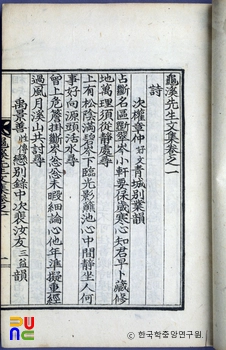 龜溪先生文集卷之一
詩
次權章仲好文靑城別業韻
占斷名區斲翠岑小軒要保歲寒心知君早卜藏修
地萬理須從靜處尋
上有松陰滿碧岑下臨光影蘸池心中間靜坐人何
事好向源頭活水尋
曾上危簷掛斷岑忩忩未暇細論心他年準擬重經
過風月溪山共討尋
禹景善 戀別錄中次裵汝友三益韻
ⓒ 한국학중앙연구원